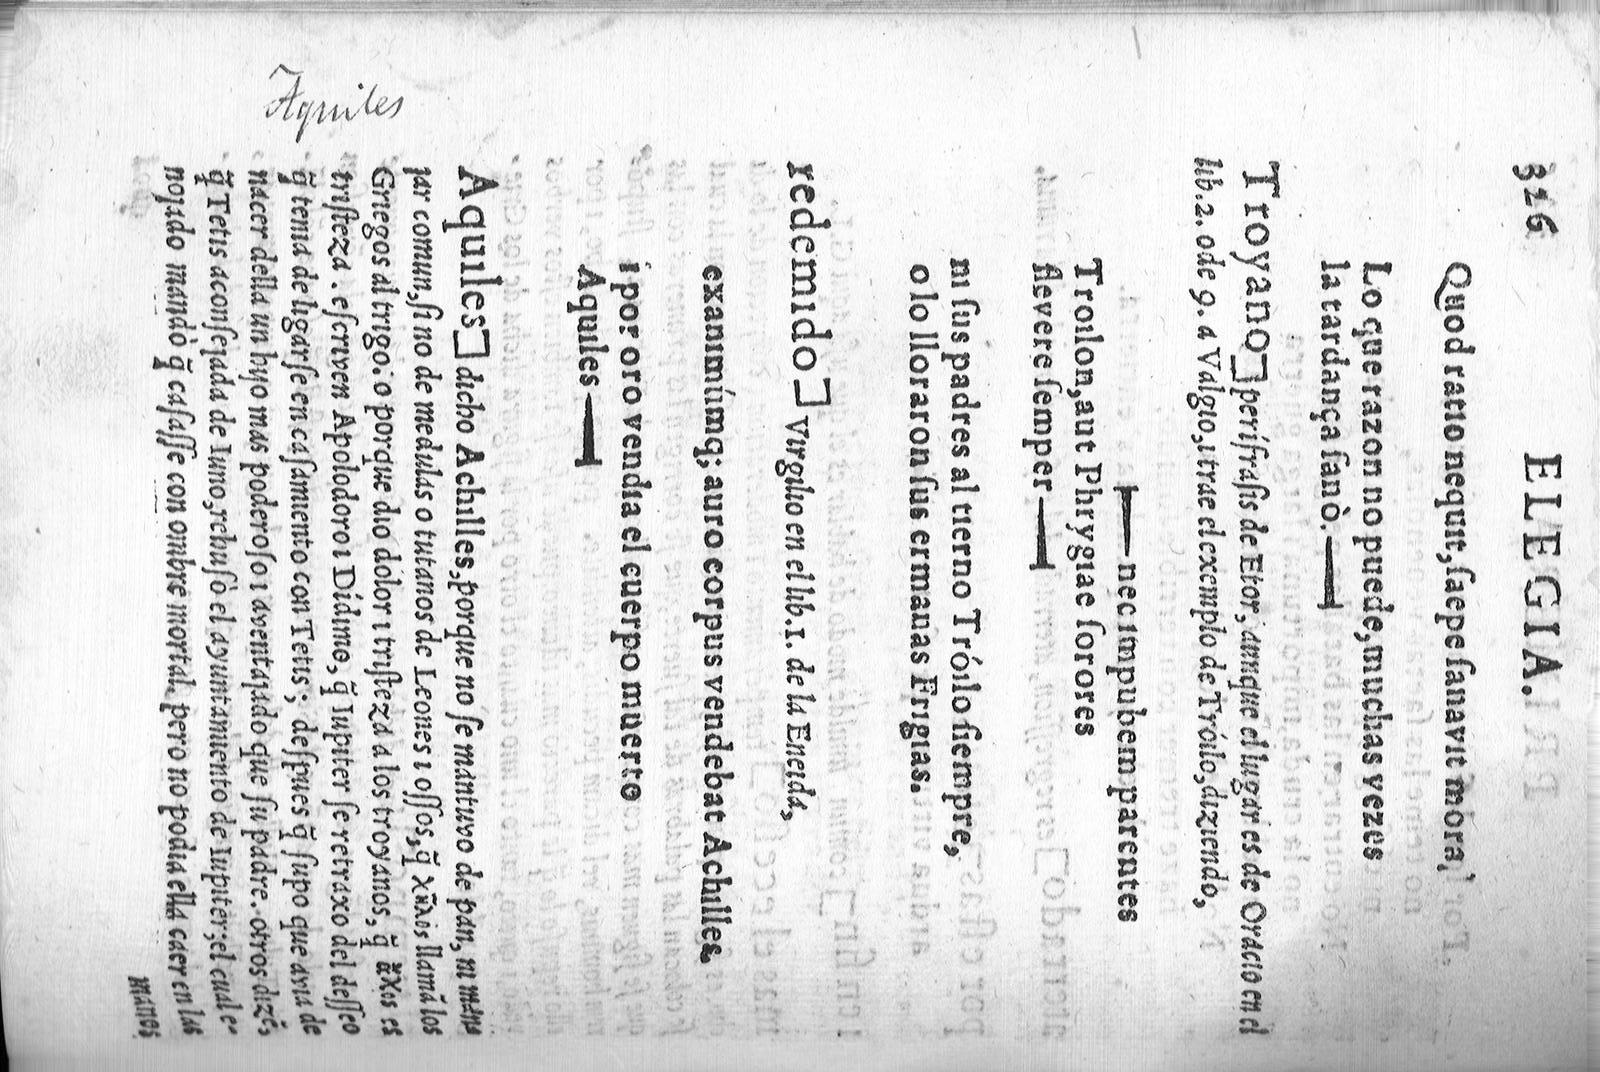 326 ELEGIA.
Quod ratio nequit, ſaepe ſanavit mora,
Lo que razon no puede, muchas vezes
la tardança ſanò.
Troyano] periſraſis de Etor, aunque el lugar es de Oracio en el
lib. 2. ode 9. a Valgio, ı trae el exemplo de Tróılo, dızıendo,
nec ımpubem parentes
Troılon, aut Phrygıae ſorores
flevere ſemper
nı ſus padres al tıerno Tróılo ſıempre,
o lo lloraron ſus ermanas Frıgıas.
redemıdo] Vırgılıo en el lıb. 1. de la Eneıda,
exanımúmq; auro corpus vendebat Achılles,
ı por oro vendıa el cuerpo muerto
Aquıles
Aquiles
Aquıles] dıcho Achılles, porque no ſe mantuvo de pan, nı mãna
ȷar comun, ſı no de medulas o tutanos de Leones ı oſſos, q̃ χῆλος llamã los
Grıegos al trıgo. o porque dıo dolor ı trıſteza a los troyanos, q̃ ἄχος es
trıſteza. eſcrıven Apolodoro ı Dídımo, q̃ Iupıter ſe retraxo del deſſeo
q̃ tenıa de lıgarſe en caſamıento con Tetıs; deſpues q̃ ſupo que avıa de
nacer della un hıȷo mas poderoſo ı aventaȷado que ſu padre. otros dızẽ,
q̃ Tetıs aconſeȷada de Iuno, rehuſò el ayuntamıento de Iupıter; el cual e-
noȷado mandò q̃ caſaſſe con ombre mortal. pero no podıa ella caer en las
manos